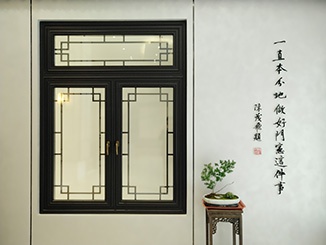 一直本分地做好門窗這件事
陳茂飛題